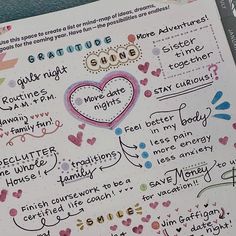 Use this space to create a list or mind-map of ideas, dreams,
goals for the coming year. Have fun – the possibilities are endless!
GRATITUDE
SHINE
More Adventures!
Sister
time
together
girls night
Routines
A.M. + P.M.
STAY CURIOUS!
More date
nights
Hawaii
family fun!
Feel better
in my body
less pain
more energy
less anxiety
DECLUTTER
the Whole
House!!
traditions
family
SAVE Money to
for vacation!!
Finish coursework to be a
certified life coach!
SMILE
Jim Gaffigan
date night!